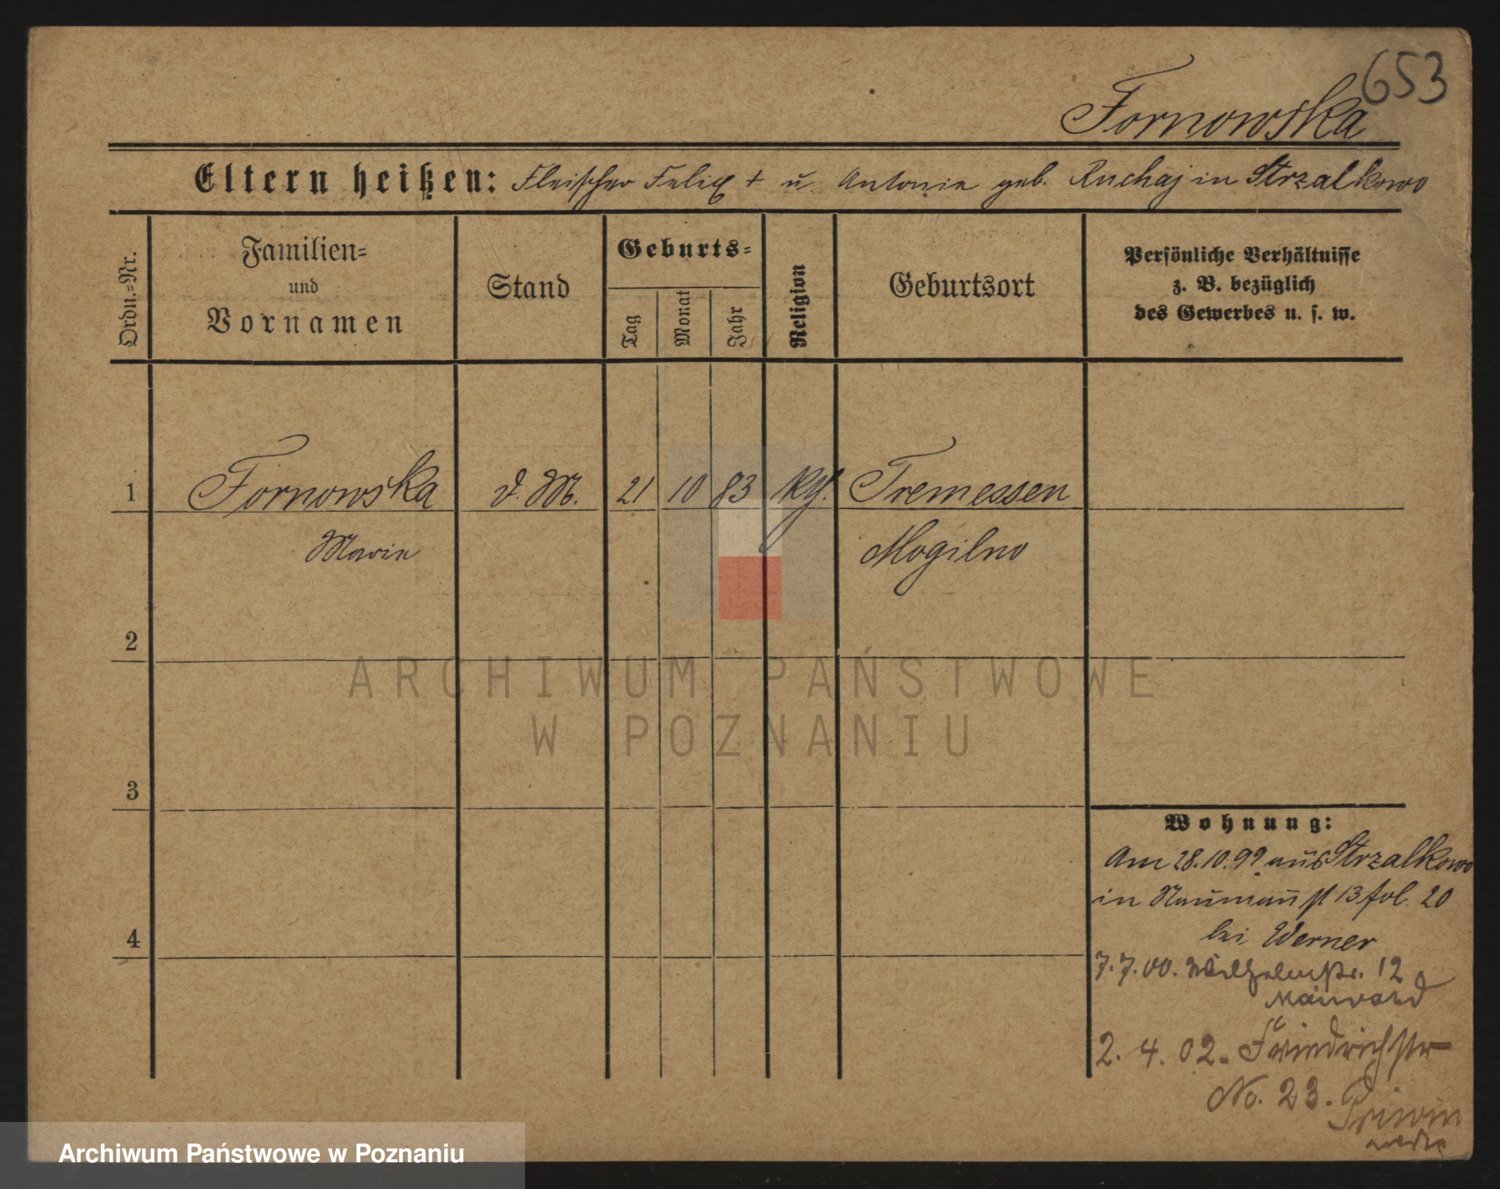 653
Fornowska
Eltern heißen: Fleischer Felix + u. Antonie geb. Ruchaj in Strzalkowo
Ordn.-Nr.
Familien-
und
Vornamen
Stand
Geburts-
Tag
Monat
Jahr
Religion
Geburtsort
Persönliche Verhältnisse
z. B. bezüglich
des Gewerbes u. s. w.
1 Fornowska d. M. 21 10 83 kth. Tremessen
Marie Mogilno
2
3
4
Wohnung:
Am 28.10.99 aus Strzalkowo
in Naumannst 13 fol. 20
bei Werner
7.7.00. Wilhelmstr. 12
Maiwald
2. 4. 02. Friedrichstr
No. 23.
ARCHIWUM PAŃSTWOWE
W POZNANIU
Archiwum Państwowe w Poznaniu